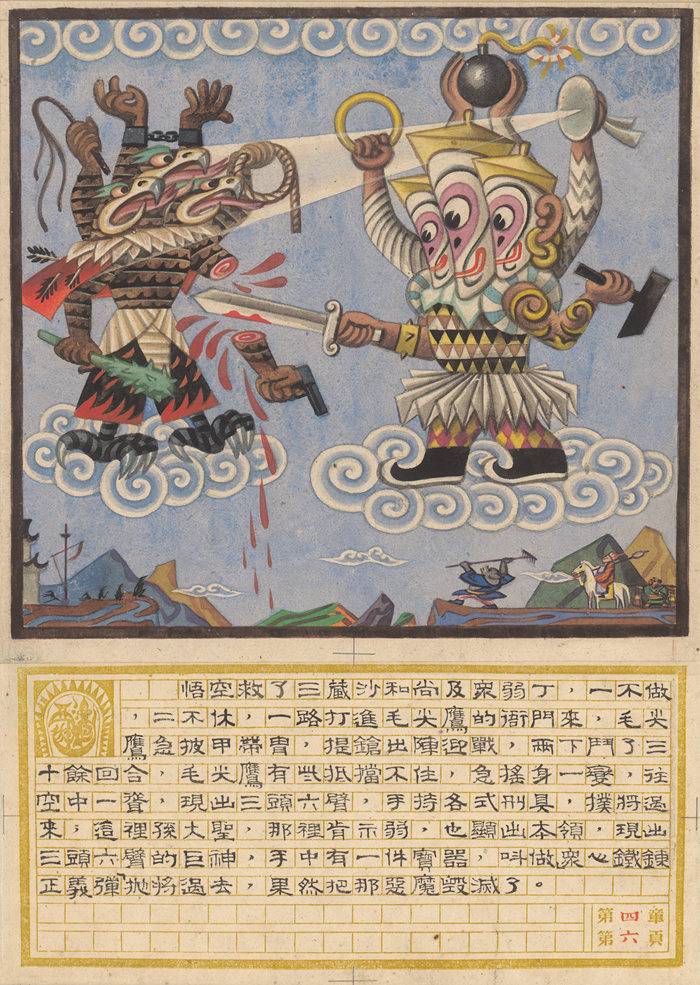 悟空救了三藏沙和尚及衆弱丁，一不做
，二不休，一路打進毛尖鷹的衙門來，毛尖
鷹急披甲帶冑，提鎗出陣迎戰，兩下鬥了三
十餘回合，毛尖鷹有些抵擋不住，急搖身一變，往
空中一聳，現出三頭六臂，手持各式刑具，撲將過
來；這裡孫大聖，那裡肯示弱，也顯出本領，現出
三頭六臂的巨神，手中有一件寶器，叫做衆心鐵鍊
正義彈，拋將過去，果然把那惡魔毀滅了。
第四章
第六頁